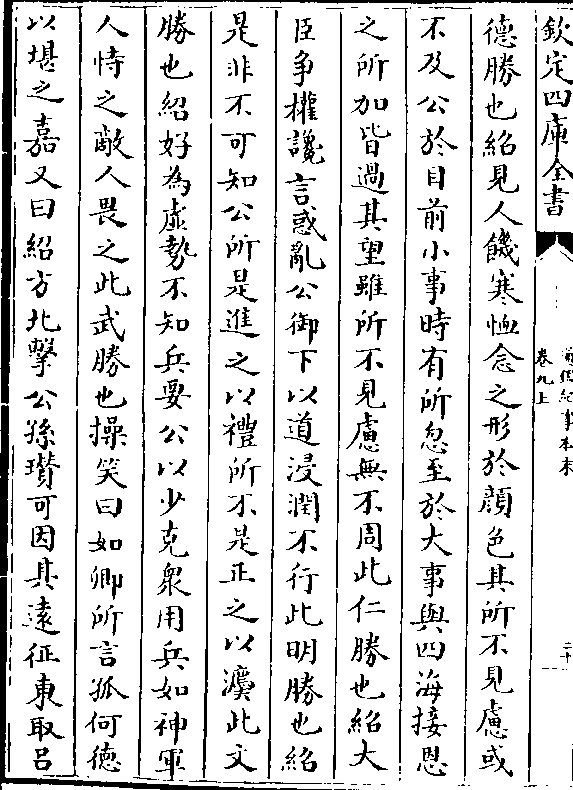 欽定四庫全書
卷九上
德勝也紹見人饑寒恤念之形於顔色其所不見慮或
不及公於目前小事時有所忽至於大事與四海接恩
之所加皆過其望雖所不見慮無不周此仁勝也紹大
臣爭權讒言惑亂公御下以道浸潤不行此明勝也紹
是非不可知公所是進之以禮所不是正之以灋此文
勝也紹好為虚勢不知兵要公以少克衆用兵如神軍
人恃之敵人畏之此武勝也操笑曰如卿所言孤何德
以堪之嘉又曰紹方北擊公孫瓚可因其遠征東取吕